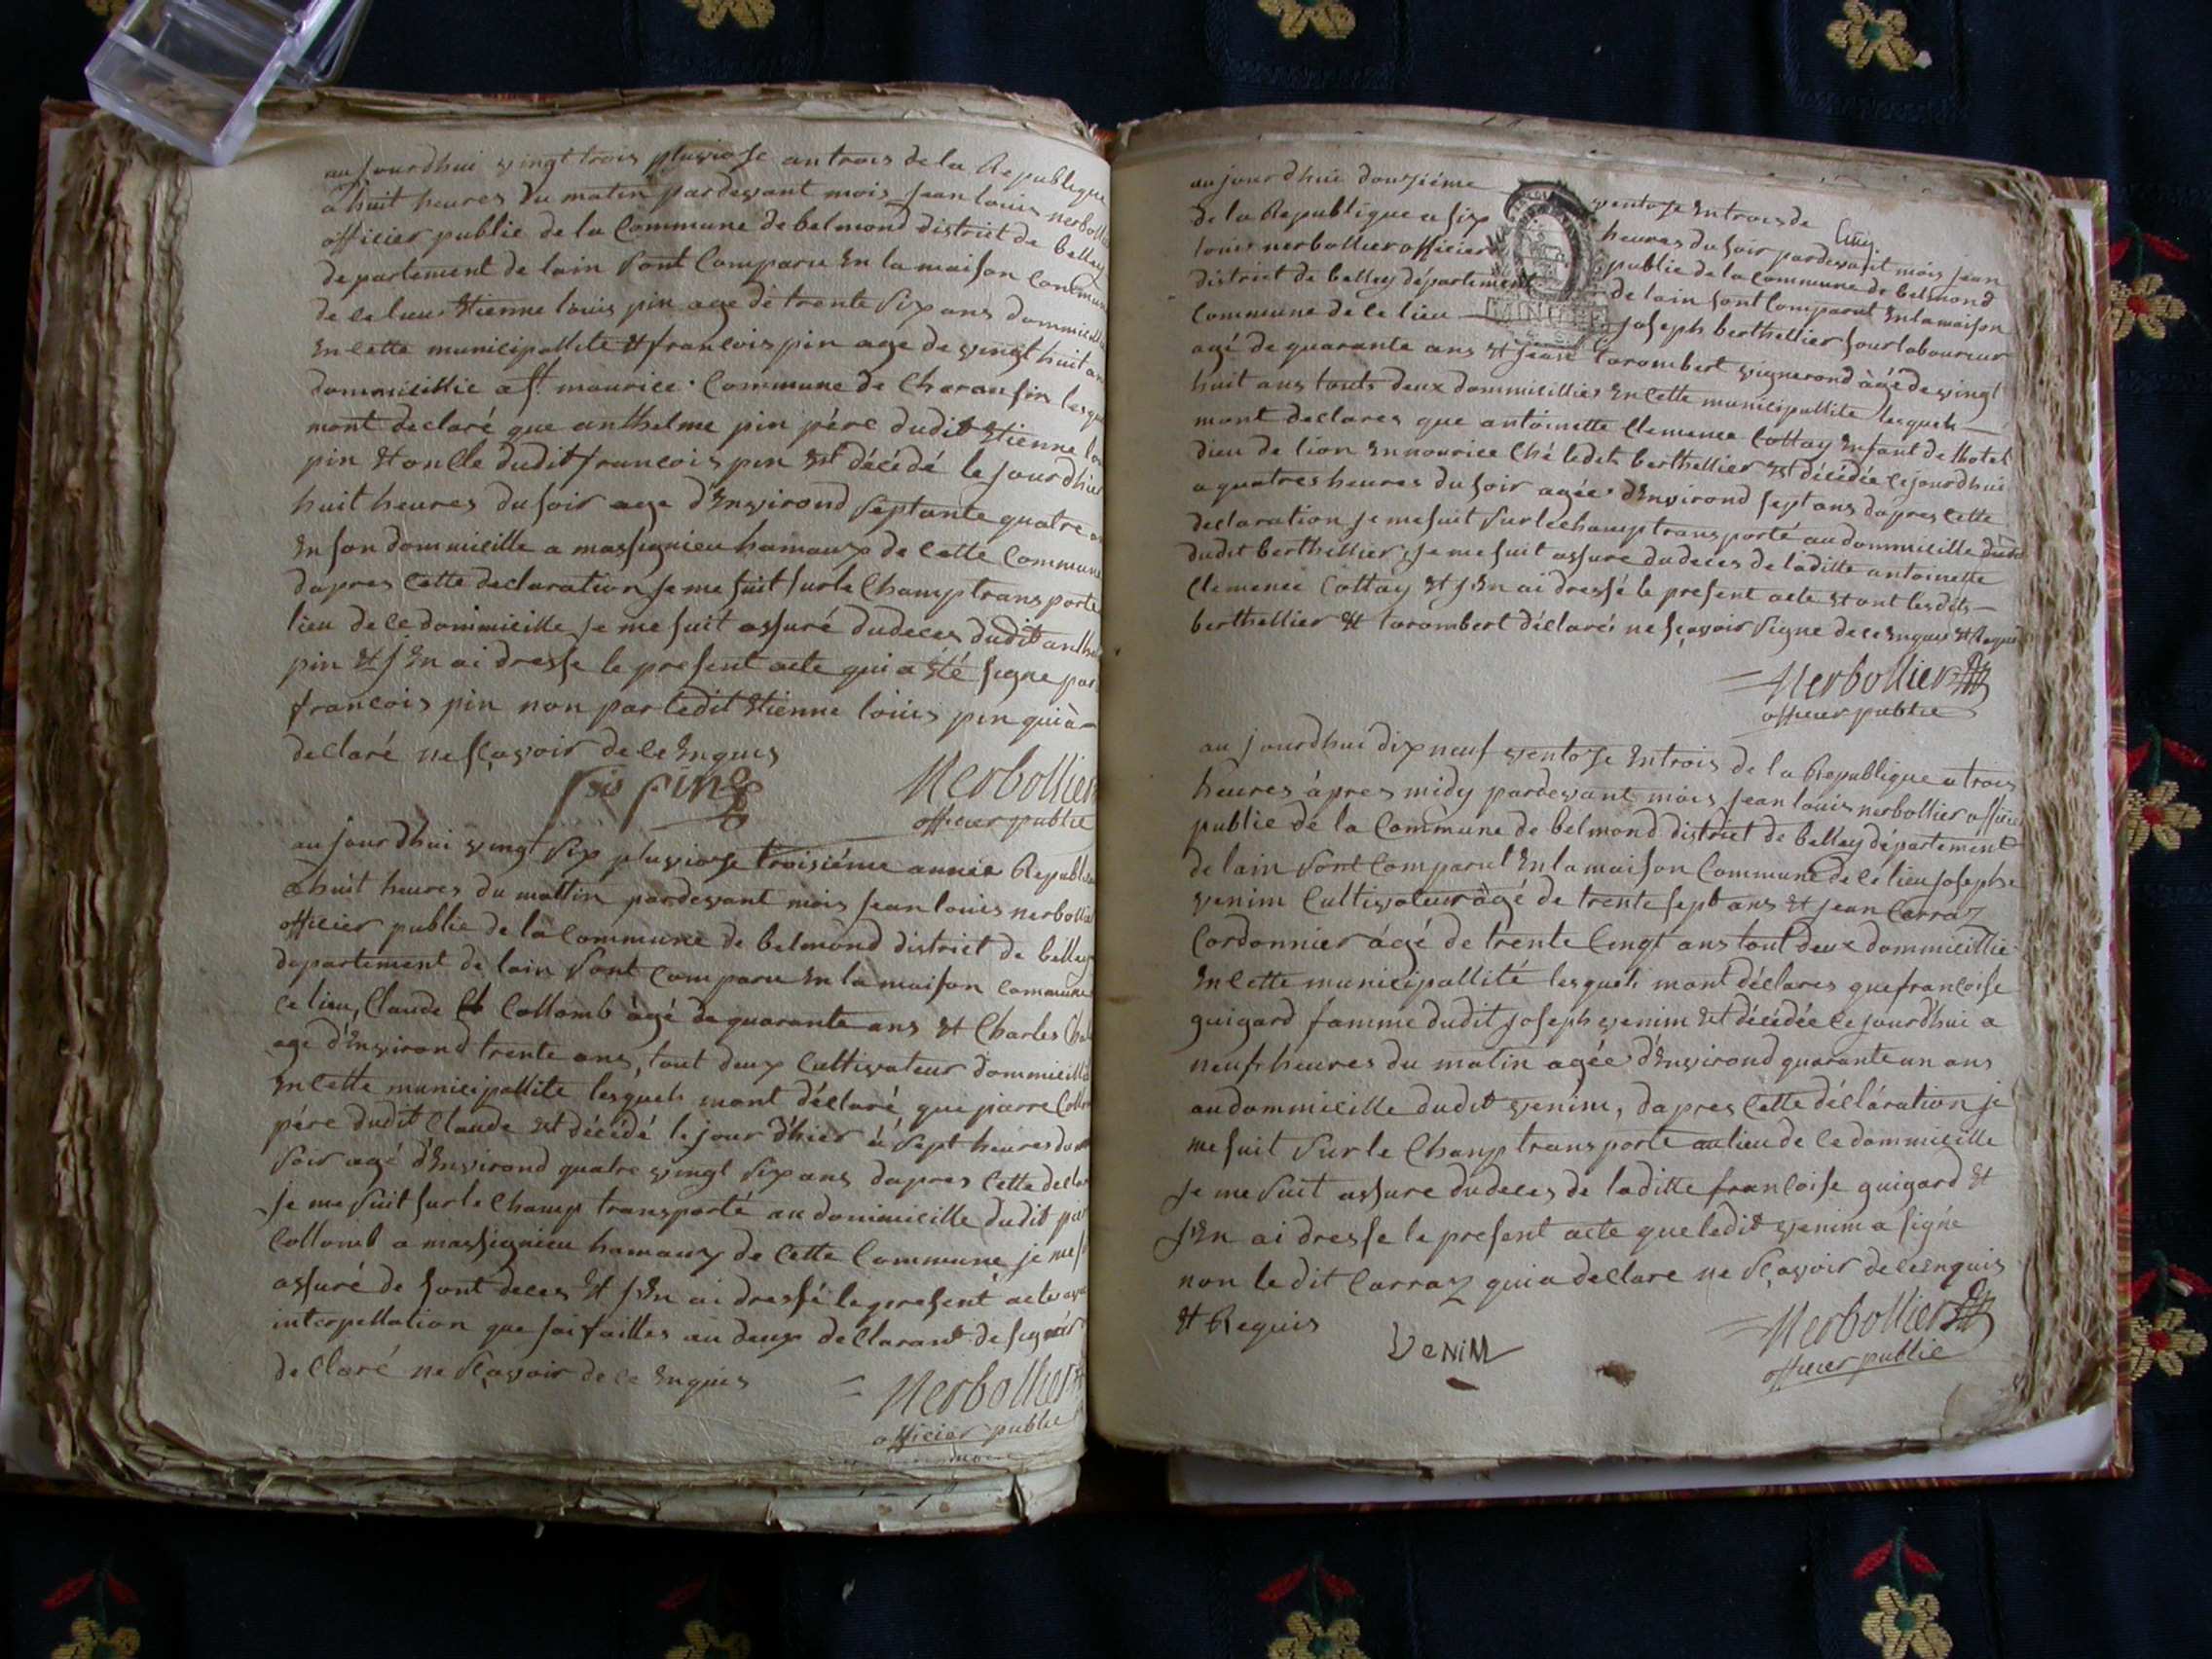 aujourdhui vingt trois pluviose an trois de la Republique
a huit heures du matin pardevant mois jean louis nerbollier
officier public de la Commune de belmond district de belley
departement de lain sont Comparu En la maison Commune
de ce lieu Etienne louis pin age de trente six ans dommicillie
En cette municipallite et francois pin age de vingt huit ans
dommicillie a st. maurice Commune de Charansin lesquels
mont declaré que anthelme pin père dudit Etienne louis
pin et oncle dudit francois pin est décédé le jourdhier
huit heures du soir age d'Environd septante quatre ans
En son dommicille a massignieu hamaux de cette Commune
dapres cette declaration je me suit sur le Champ transporte
lieu de ce dommicille je me suit assuré du deces dudit anthelme
pin et j'En ai dresse le present acte qui a été signe par
francois pin non par ledit Etienne louis pin qui à
declaré ne sçavoir de ce Enquis
fois pin
Nerbollier
officier public
aujourdhui vingt six pluviose troisiéme année Republicaine
a huit heures du mattin pardevant mois jean louis nerbollier
officier public de la Commune de belmond district de belley
departement de lain sont comparu En la maison commune
ce lieu, Claude Collomb àgé de quarante ans et Charles
age d'Environd trente ans, tout deux Cultivateur dommicillie
En cette municipallite lesquels mont déclaré que piarre Collomb
pére dudit Claude est décédé le jour d'hier à sept heures du
soir agé d'Environd quatre vingt six ans dapres cette declaration
je me suit sur le Champ transporté au dommicille dudit
Collomb a massignieu hamaux de cette Commune je me suit
assuré de sont deces et j'En ai dressé le present acte
interpellation que jai faittes au deux declarant de signer
declaré ne sçavoir de ce Enquis
Nerbollier
officier public
aujourdhui douziéme ventose En trois de
de la Republique a six heures du soir pardevant mois jean
louis nerbollier officier public de la Commune de belmond
district de belley département de lain sont Comparut En la maison
Commune de ce lieu joseph berthellier laboureur
agé de quarante ans et jean tarombert vignerond àgé de vingt
huit ans touts deux dommicilliés En cette municipallite lesquels
mont declares que antoinette Clemence Cottay Enfant de lhotel
dieu de lion En nourice Ché ledit berthellier est décédée ce jourdhui
a quatres heures du soir agée d'Environd sept ans dapres cette
declaration je me suit sur le champ transporté au dommicille
dudit berthellier, je me suit assure du deces de laditte antoinette
Clemence Cottay et j'En ai dressé le present acte et ont les dits
berthellier et tarombert déclarés ne sçavoir signe de ce Enquis et Requis
Nerbollier
officier public
au jourdhui dix neuf ventose En trois de la Republique a trois
heures àpres midy pardevant mois jean louis nerbollier officier
public de la Commune de belmond district de belley département
de lain sont Comparut En la maison Commune de ce lieu joseph
venim Cultivateur àgé de trente sept ans et jean Carraz
Cordonnier ágé de trente Cinqt ans tout deux dommicillie
En cette municipallité lesquels mont déclares que francoise
guigard famme dudit joseph venim est décédée ce jourd'hui a
neufs heures du matin agée d'Environd quarante un ans
au dommicille dudit venim, dapres cette déclaration je
me suit sur le Champ transporte au lieu de ce dommicille
je me suit assure du deces de laditte francoise guigard et
j'En ai dresse le present acte que ledit venim a signe
non le dit Carraz qui a declare ne sçavoir de ce Enquis
et Requis
VeNiM
Nerbollier
officier public